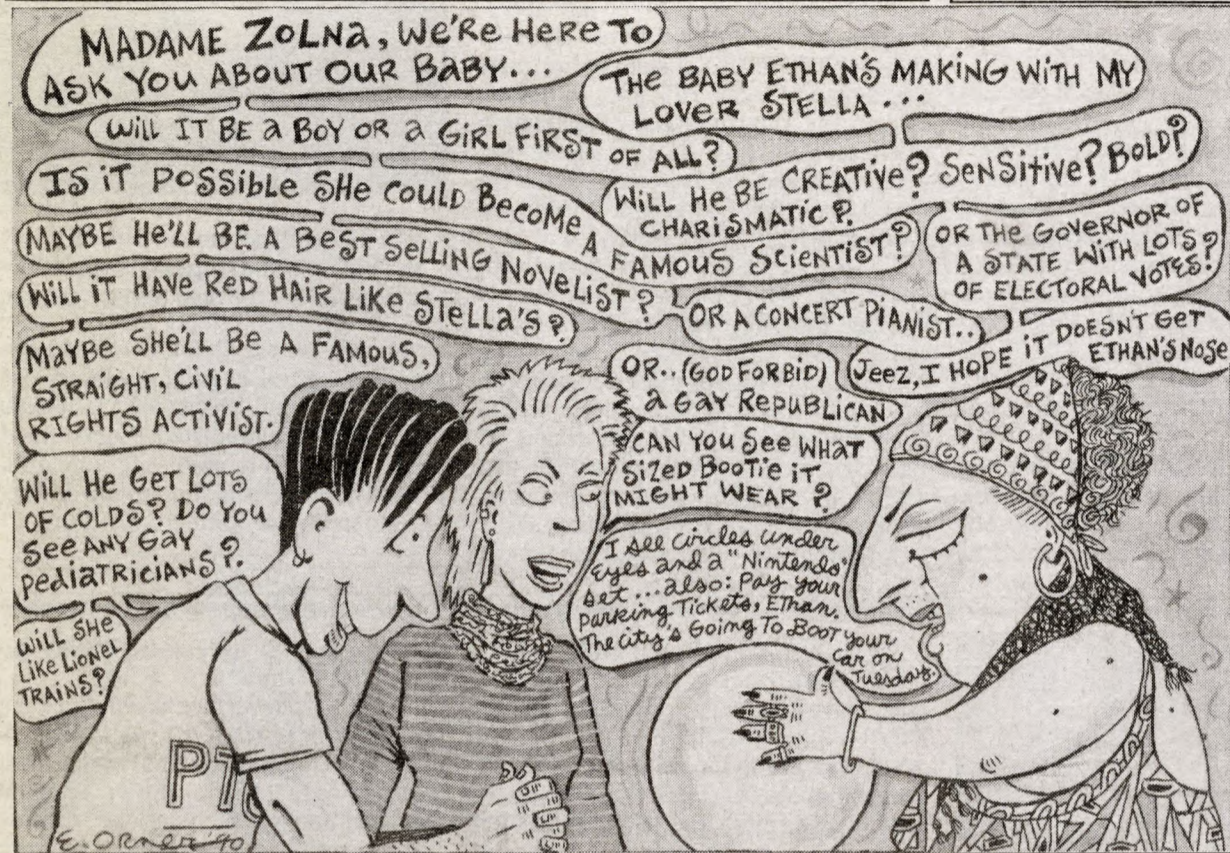 MADAME ZOLNA, WE'RE HERE TO
ASK YOU ABOUT OUR BABY...
THE BABY ETHAN'S MAKING WITH MY
LOVER STELLA...
WILL IT BE A BOY OR A GIRL FIRST OF ALL?
WILL HE BE CREATIVE? SENSITIVE? BOLD?
CHARISMATIC?
IS IT POSSIBLE SHE COULD BECOME A FAMOUS SCIENTIST?
OR THE GOVERNOR OF
A STATE WITH LOTS
OF ELECTORAL VOTES?
MAYBE HE'LL BE A BEST SELLING NOVELIST?
OR A CONCERT PIANIST..
WILL IT HAVE RED HAIR LIKE STELLA'S?
JEEZ, I HOPE IT DOESN'T GET
ETHAN'S NOSE
MAYBE SHE'LL BE A FAMOUS,
STRAIGHT, CIVIL
RIGHTS ACTIVIST.
OR.. (GOD FORBID)
A GAY REPUBLICAN
WILL HE GET LOTS
OF COLDS? DO YOU
SEE ANY GAY
PEDIATRICIANS?
CAN YOU SEE WHAT
SIZED BOOTIE IT
MIGHT WEAR?
WILL SHE
LIKE LIONEL
TRAINS?
I see circles under
Eyes and a "Nintendo"
set... also: Pay your
Parking Tickets, Ethan.
The City's Going To Boot your
Car on
Tuesday.
PT
E. ORNER '90